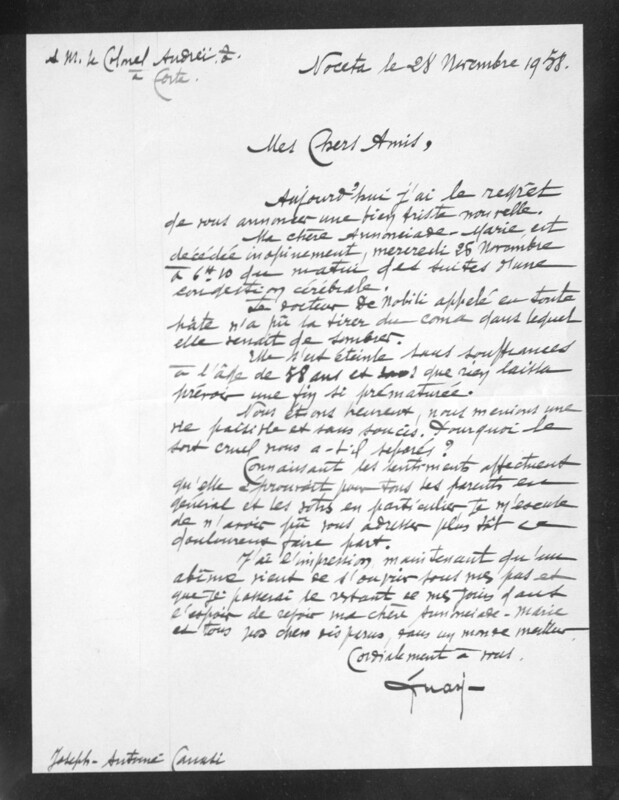 A M. le Colonel Andreï
à Corte.
Noceta le 28 Novembre 1958.
Mes Chers Amis,
Aujourd'hui j'ai le regret
de vous annoncer une bien triste nouvelle.
Ma chère Annonciade-Marie, est
décédée inopinément, mercredi 26 Novembre
à 6h 10 du matin des suites d'une
congestion cérébrale.
Le docteur de Nobili appelé en toute
hâte n'a pû la tirer du coma dans lequel
elle venait de sombrer.
Elle s'est éteinte sans souffrances
à l'âge de 58 ans et que rien laissa
prévoir une fin si prématurée.
Nous étions heureux, nous menions une
vie paisible et sans soucis. Pourquoi le
sort cruel nous a-t-il séparés?
Connaissant les sentiments affectueux
qu'elle éprouvait pour tous les parents en
général et les votres en particulier je m'excuse
de n'avoir pû vous adresser plus tôt ce
douloureux faire part.
J'ai l'impression, maintenant qu'un
abîme vient de s'ouvrir sous mes pas et
que je passerai le restant de mes jours dans
l'espoir de revoir ma chère Annonciade-Marie
et tous nos chers disparus, dans un monde meilleur.
Cordialement à vous.
Joseph-Antoine